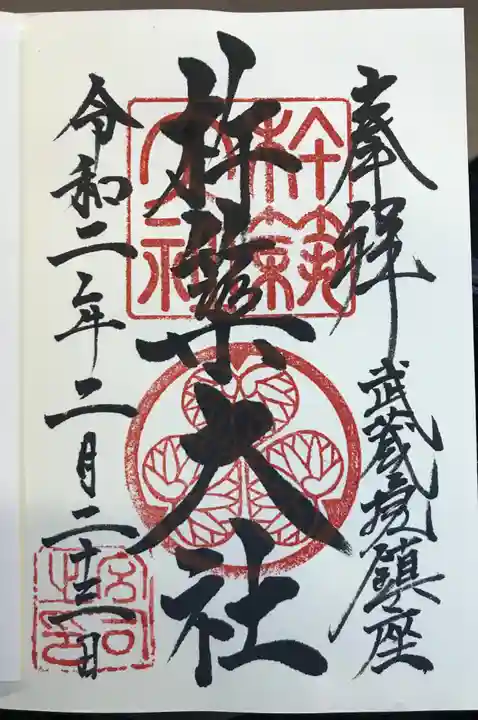 奉拝 武蔵境鎮座
杵築大社
杵築大社
令和二年二月二十三日
宮司之印